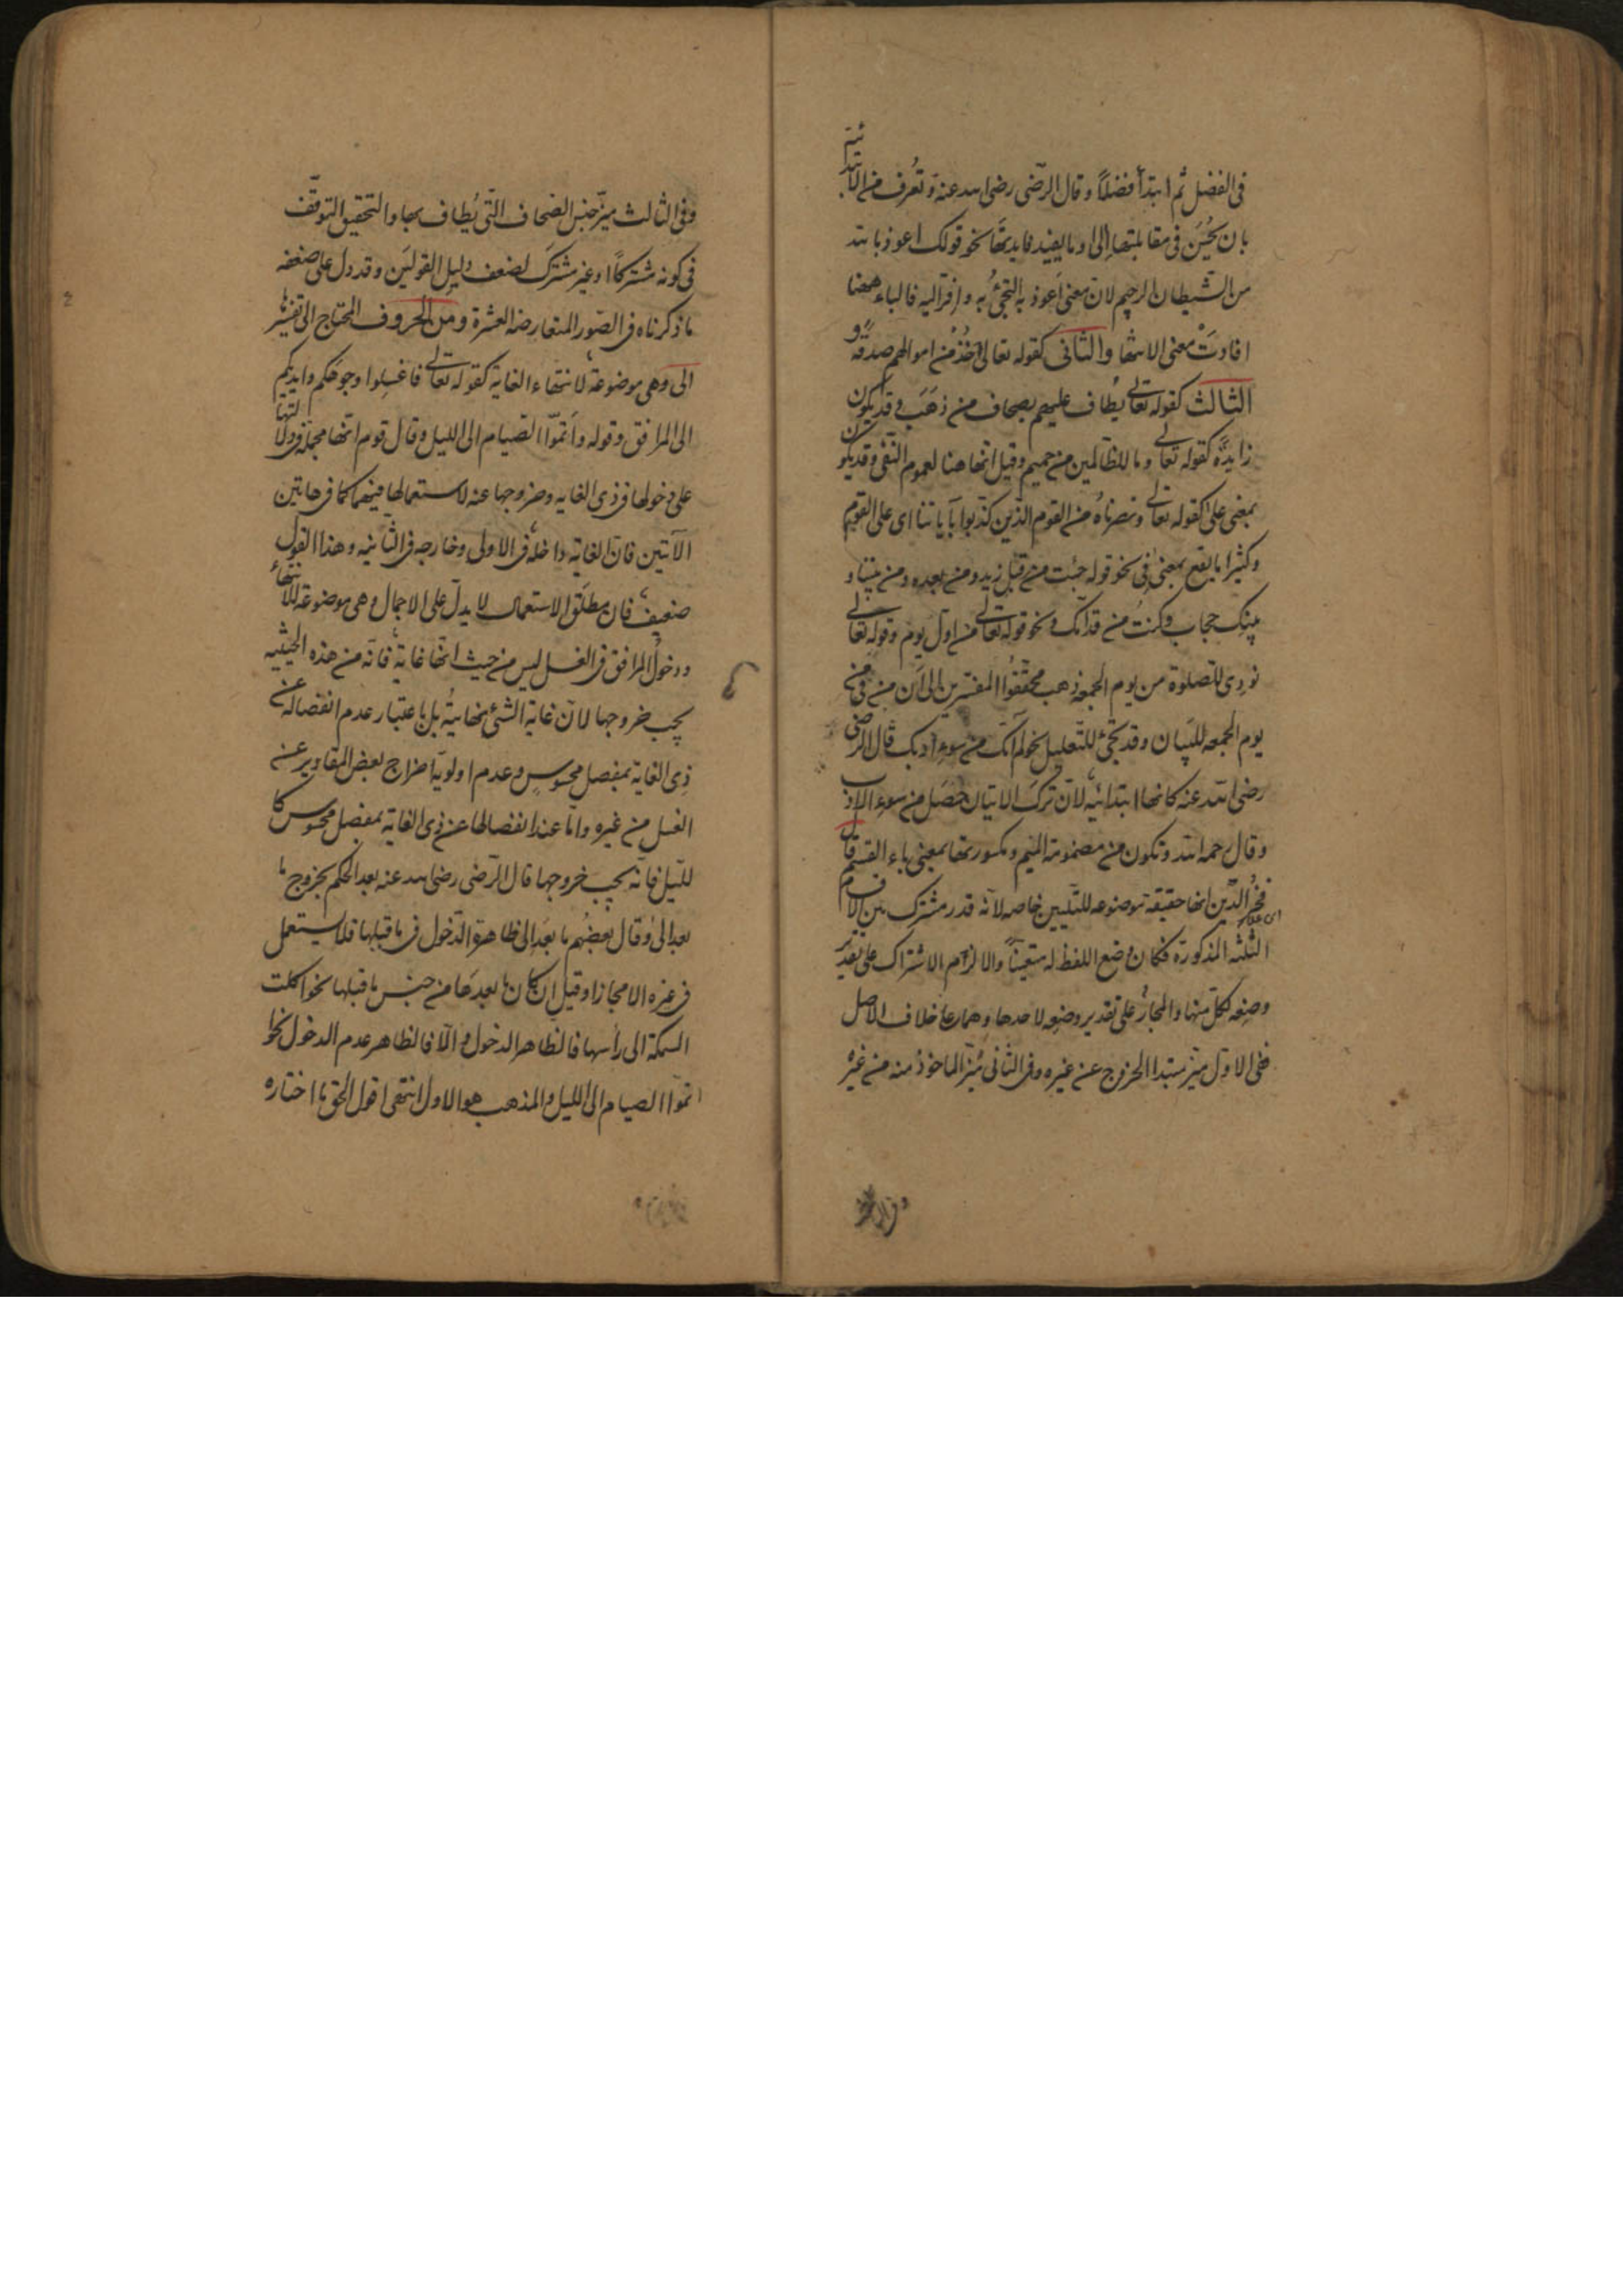 فى الفضل ثم ابتدأ فضلاً وقال الرضى رضى الله عنه وتُعرف من الابتدائية
بان يحسن فى مقابلتها الى او ما يفيد فايدتها نحو قولك اعوذ بالله
من الشيطان الرجيم لان معنى اعوذ به التجئ به وافر اليه فالباء ههنا
افادت معنى الانتها والثانى كقوله تعالى خذ من اموالهم صدقة و
الثالث كقوله تعالى يطاف عليهم بصحاف من ذهب وقد يكون
زايدة كقوله تعالى وما للظالمين من حميم وقيل انها هنا لعموم النفى وقد يكون
بمعنى على كقوله تعالى ونصرناه من القوم الذين كذبوا بآياتنا اى على القوم
وكثيرا ما يقع بمعنى فى نحو قوله جئت من قبل زيد ومن بعده ومن بيننا و
بينك حجاب وكنت من قدامك ونحو قوله تعالى من اول يوم وقوله تعالى
نودى للصلوة من يوم الجمعه ذهب محققوا المفسرين الى ان من فى من
يوم الجمعه للبيان وقد تجئ للتعليل نحو لم آتك من سوء ادبك قال الرضى
رضى الله عنه كانها ابتدائيه لان ترك الاتيان حصل من سوء الادب
وقال رحمه الله وتكون من مضمومة الميم ومكسورتها بمعنى باء القسم قال
فخر الدين انها حقيقة موضوعه للتبيين خاصه لانه قدر مشترك بين الاقسام
الثلثه المذكورة فكان وضع اللفظ له متعيناً والا لزم الاشتراك على تقدير
وضعه لكل منها والمجاز على تقدير وضعه لاحدها وهما على خلاف الاصل
ففى الاول ميز مبتدا الخروج عن غيره وفى الثانى ميز الماخوذ منه من غيره
وفى الثالث ميز جنس الصحاف التى يُطاف بها والتحقيق التوقف
فى كونه مشتركاً او غير مشترك لضعف دليل القولين وقد دل على ضعفه
ما ذكرناه فى الصور المتعارضه العشرة ومن الحروف المحتاج الى تفسيرها
الى وهى موضوعة لانتهاء الغاية كقوله تعالى فاغسلوا وجوهكم وايديكم
الى المرافق وقوله واتموا الصيام الى الليل وقال قوم انها مجملة فى دلالتها
على دخولها فى ذى الغايه وخروجها عنه لاستعمالها فيهما كما فى هاتين
الآيتين فان الغاية داخلة فى الاولى وخارجه فى الثانيه وهذا القول
ضعيف فان مطلق الاستعمال لا يدل على الاجمال وهى موضوعة للانتهاء
ودخول المرافق فى الغسل ليس من حيث انها غاية فانه من هذه الحيثيه
يجب خروجها لان غاية الشئ نهايته بل باعتبار عدم انفصاله عن
ذى الغاية بمفصل محسوس وعدم اولوية اخراج بعض المقادير عن
الغسل من غيره واما عند انفصالها عن ذى الغاية بمفصل محسوس كا
لليل فانه يجب خروجها قال الرضى رضى الله عنه بعد الحكم بخروج ما
بعد الى وقال بعضهم ما بعد الى ظاهرة الدخول فى ما قبلها فلا يستعمل
فى غيره الا مجازا وقيل ان كان ما بعدها من جنس ما قبلها نحو اكلت
السمكة الى رأسها فالظاهر الدخول والا فالظاهر عدم الدخول نحو
اتموا الصيام الى الليل والمذهب هو الاول انتهى اقول الحق ما اختاره